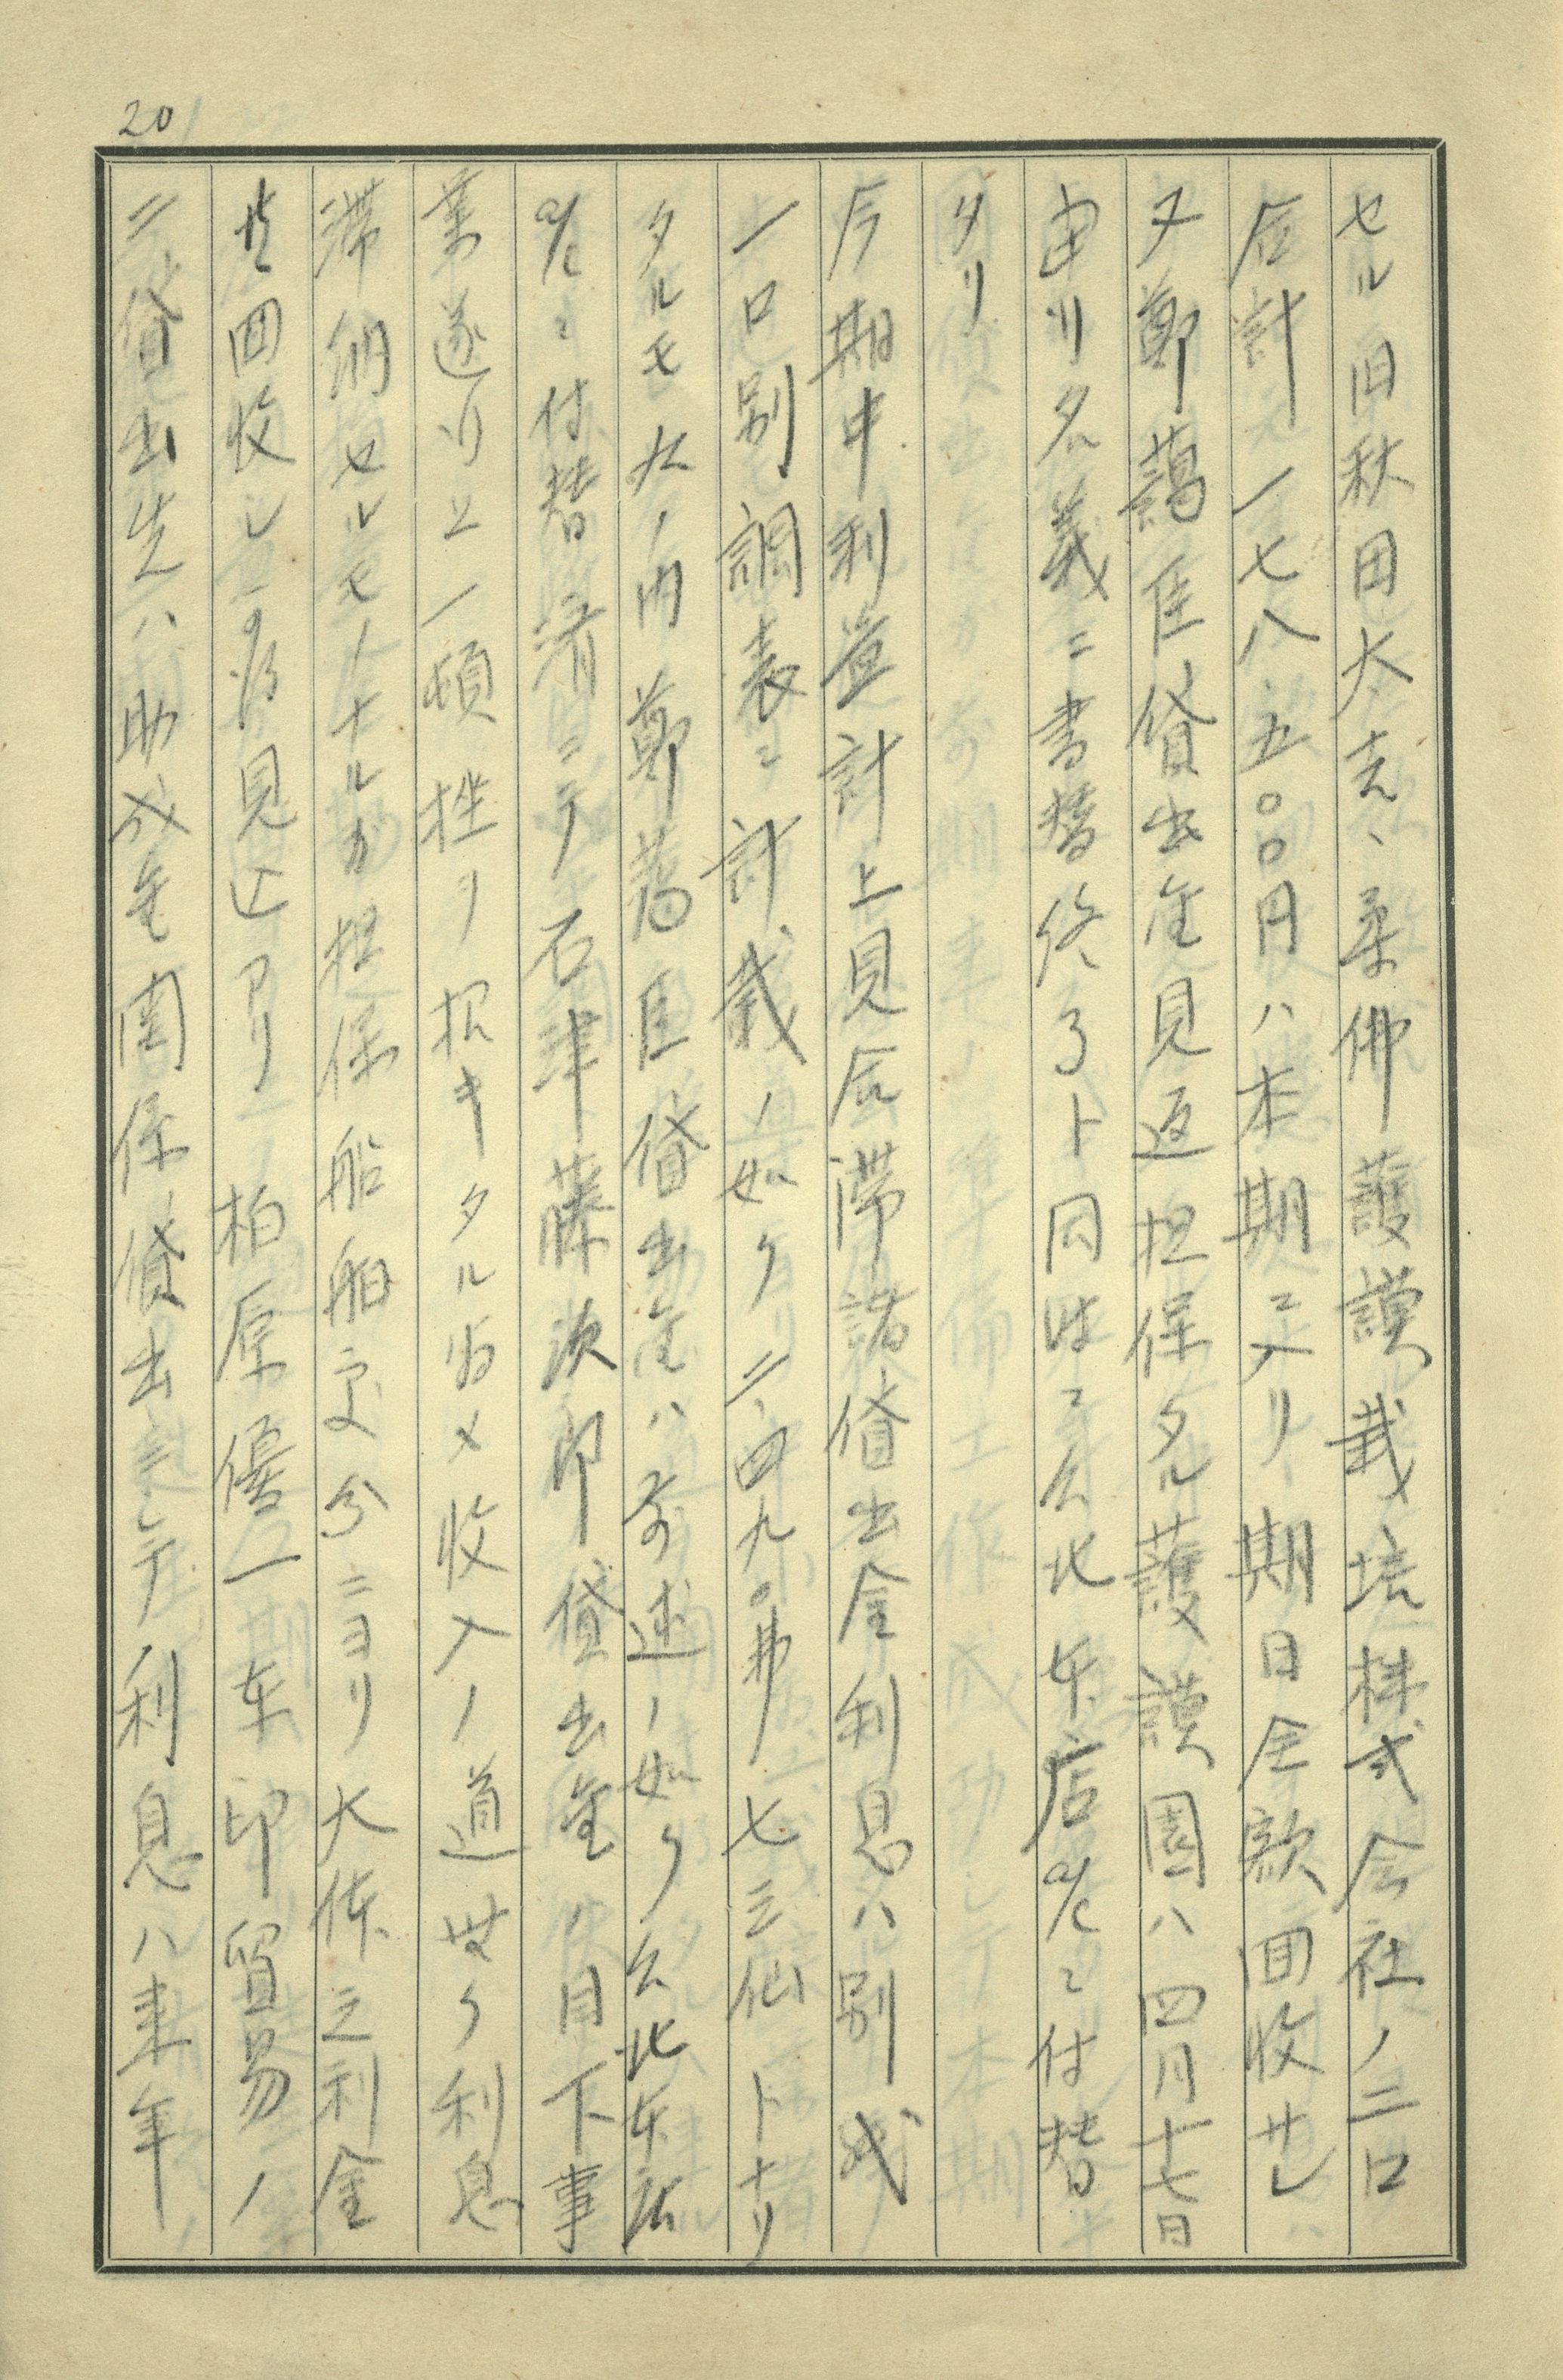 20
セル旧秋田大吉、柔佛護謨栽培株式会社ノ二口
合計一七八五〇〇円ハ本期ニ入リ期日全額回收サレ
又鄭藹臣貸出金見返担保タル護謨園ハ四月十七日
由リ名義ニ書替終了ト同時ニ台北支店a/cニ付替
タリ
今期中利益計上見合滞諸貸出金利息ハ別
一口別調表ニ計載ノ如ク二、四九〇弗七三仙トナリ
タルモ右ノ内鄭藹臣貸出金ハ前述ノ如ク台北支店
a/cニ付替済ニテ石津藤次郎貸出金ハ目下事
業遂行上一頓挫ヲ招キタル為メ收入ノ道無ク利息
滞納セルモノナルガ担保船舶処分ニヨリ大体元利金
共回收シ得ル見込アリ 柏原優一 東印貿易ノ
二貸出先ハ助成金関係貸出ニシテ利息ハ来年